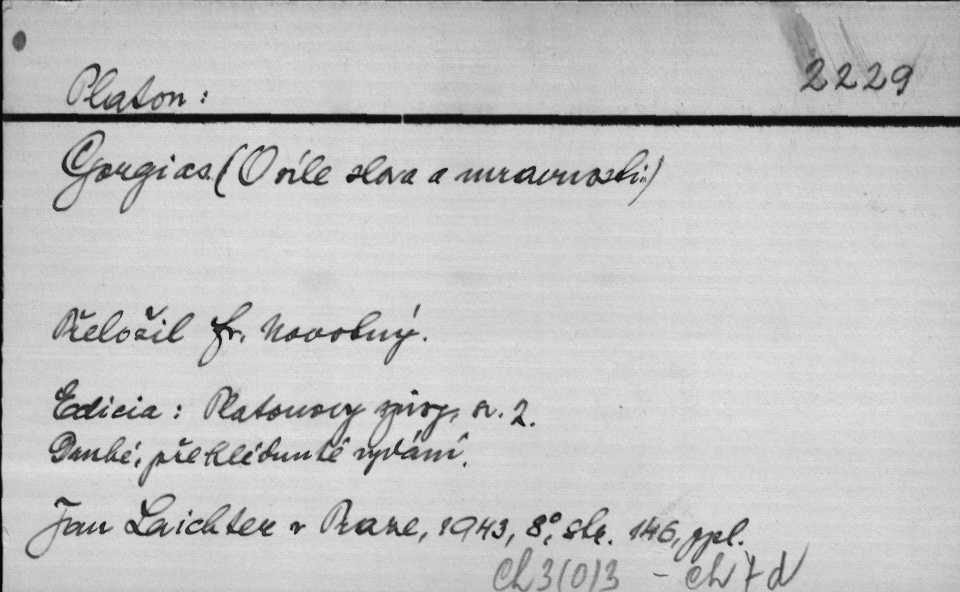 2229
Platon:
Gorgias. (O síle slova a mravnosti.)
Přeložil Fr. Novotný.
Edicia: Platonovy spisy, sv. 2.
Druhé, přehlédnuté vydání.
Jan Laichter v Praze, 1943, 8°, str. 146, ppl.
Ch3(0)3 - ch + d